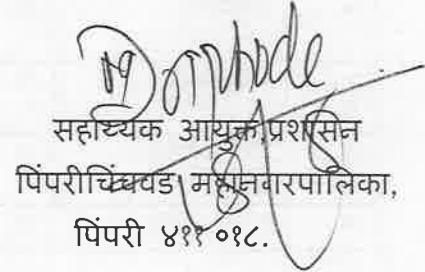 सहाय्यक आयुक्त प्रशासन
पिंपरीचिंचवड महानगरपालिका,
पिंपरी ४११ ०१८.